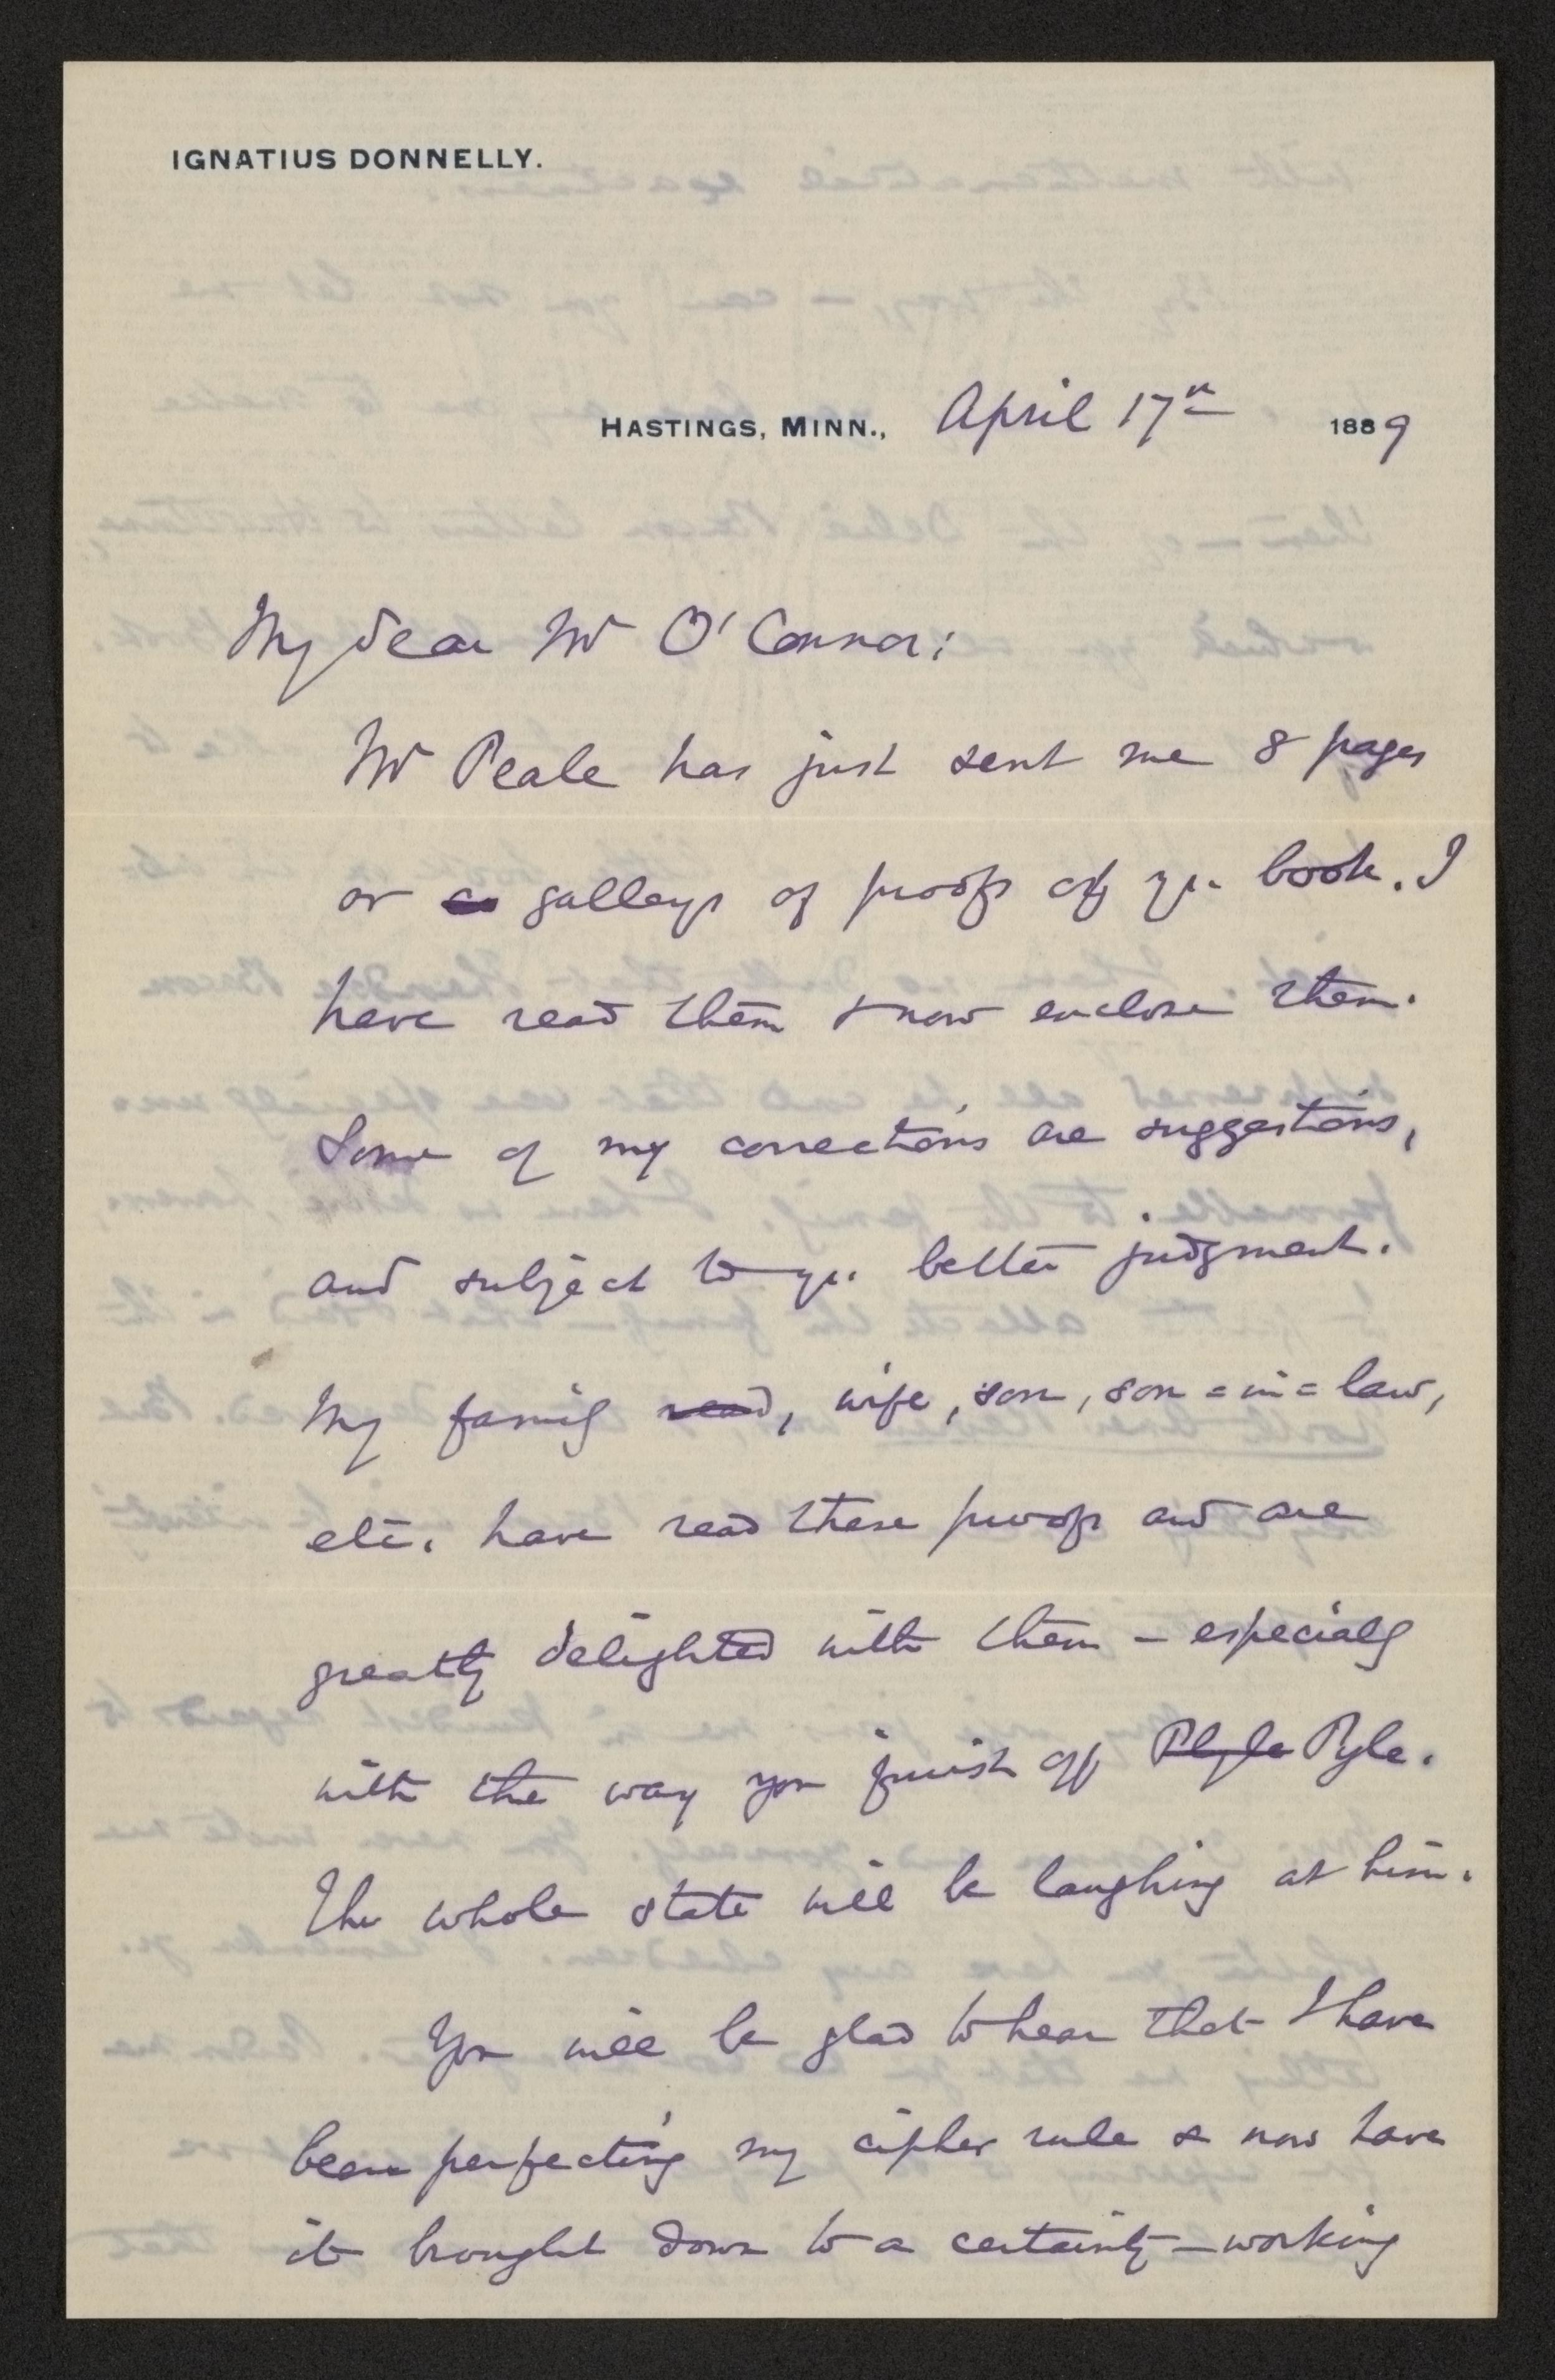 IGNATIUS DONNELLY.
HASTINGS, MINN., April 17th 1889
My dear Mr O'Connor:
Mr Peale has just sent me 8 pages
or galleys of proofs of yr. book. I
have read them & now enclose them.
Some of my corrections are suggestions,
and subject to yr. better judgment.
My family read, wife, son, son=in=law,
etc. have read these proofs and are
greatly delighted with them – especially
with the way you finish off Plyle Pyle.
The whole state will be laughing at him.
You will be glad to hear that I have
been perfecting my cipher rule & now have
it brought down to a certainty – working